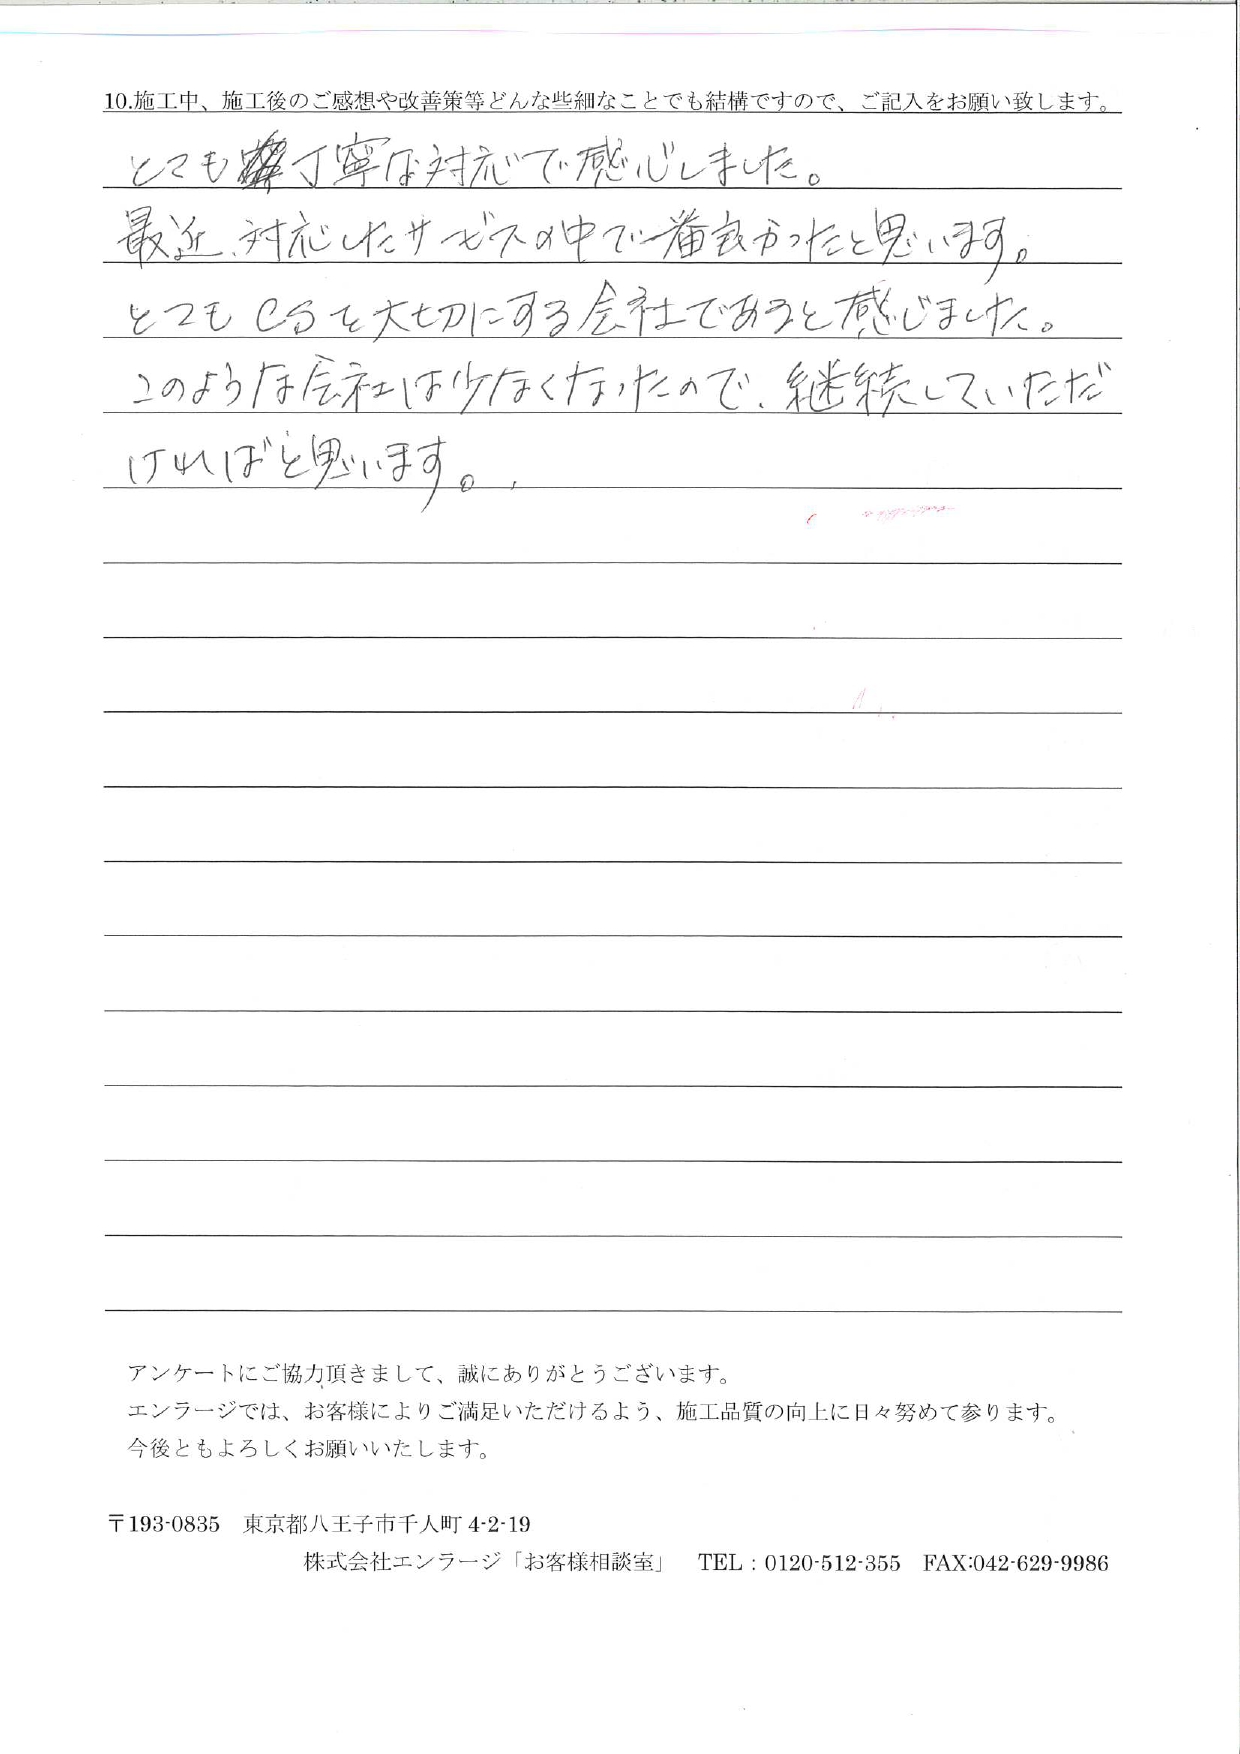 10.施工中、施工後のご感想や改善策等どんな些細なことでも結構ですので、ご記入をお願い致します。
とても丁寧な対応で感心しました。
最近、対応したサービスの中で一番良かったと思います。
とてもCSを大切にする会社であると感じました。
このような会社は少なくなったので、継続していただ
ければと思います。
アンケートにご協力頂きまして、誠にありがとうございます。
エンラージでは、お客様によりご満足いただけるよう、施工品質の向上に日々努めて参ります。
今後ともよろしくお願いいたします。
〒193-0835　東京都八王子市千人町 4-2-19
株式会社エンラージ「お客様相談室」　TEL：0120-512-355　FAX:042-629-9986